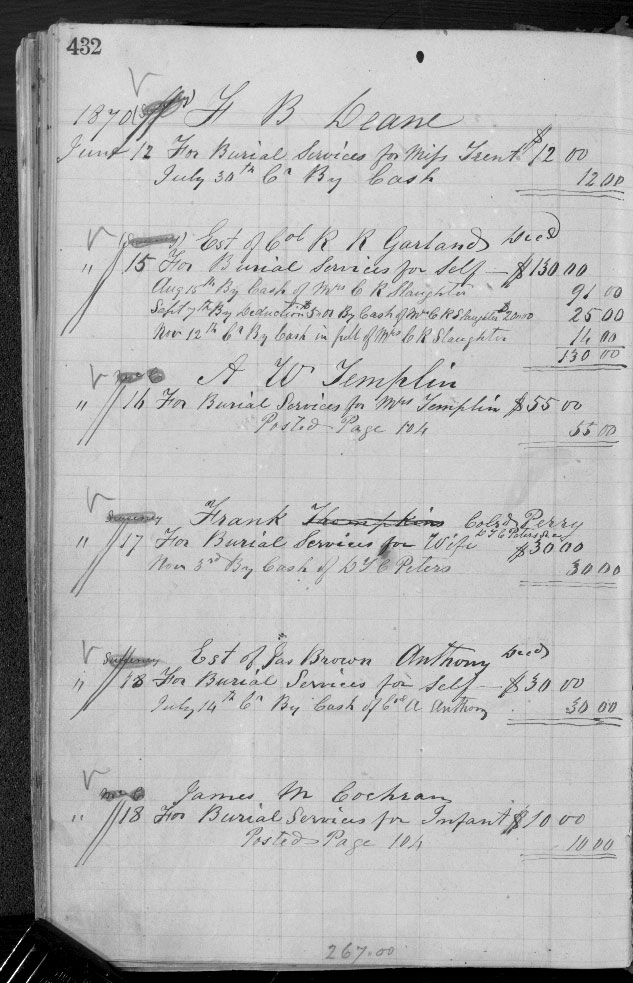 432
1870 F B Deane
June 12 For Burial Services for Miss Trent $12 00
July 30th Cr By Cash 12 00
Est of Col R R Garland Decd
" 15 For Burial Services for Self — $130 00
Aug 15th By Cash of Mrs C R Slaughter 91 00
Sept 7th By Deduction 5 00 By Cash of Mrs C R Slaughter 20 00 25 00
Nov 12th Cr By Cash in full of Mrs C R Slaughter 14 00
130 00
A W Templin
" 16 For Burial Services for Mrs Templin $55 00
Posted Page 104 55 00
Frank Thompkins Colrd Perry
D T C Peters
" 17 For Burial Services for Wife $30 00
Nov 3rd By Cash of D T C Peters 30 00
Est of Jas Brown Anthony Decd
" 18 For Burial Services for Self — $30 00
July 14th Cr By Cash of A Anthony 30 00
James M Cochran
" 18 For Burial Services for Infant $10 00
Posted Page 104 10 00
267.00